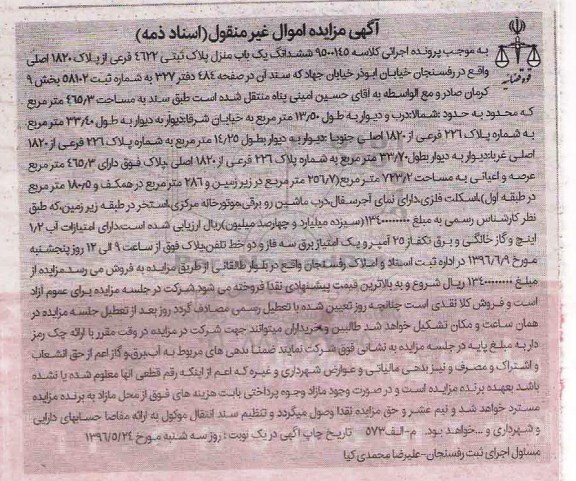 آگهی مزایده اموال غیر منقول(اسناد ذمه)
به موجب پرونده اجرائی کلاسه ۹۵۰۰۱۴۵ ششدانگ یک باب منزل پلاک ثبتی ۴۶۲۲ فرعی از پلاک ۱۸۲۰ اصلی
واقع در رفسنجان خیابان ابوذر خیابان جهاد که سند آن در صفحه ۴۸۴ دفتر ۳۲۷ به شماره ثبت ۵۸۱۰۲ بخش ۹
کرمان صادر و مع الواسطه به آقای حسین امینی پناه منتقل شده است طبق سند به مساحت ۴۶۵/۳ متر مربع
که محدود به حدود :شمالا:درب و دیوار به طول ۱۳/۵۰ متر مربع به خیابان شرقا:دیوار به دیوار به طول ۳۳/۴۰ متر مربع
به شماره پلاک ۲۲۶ فرعی از ۱۸۲۰ اصلی جنوبا :دیوار به دیوار بطول ۱۴/۲۵ متر مربع به شماره پلاک ۲۲۶ فرعی از ۱۸۲۰
اصلی غربا:دیوار به دیوار بطول ۳۳/۷۰ متر مربع به شماره پلاک ۲۲۶ فرعی از ۱۸۲۰ اصلی .پلاک فوق دارای ۴۶۵/۳ متر مربع
عرصه و اعیانی به مساحت ۷۲۳/۲ متر مربع(۲۵۶/۷ متر مربع در زیر زمین و ۲۸۶ متر مربع در همکف و ۱۸۰/۵ متر مربع
در طبقه اول)،اسکلت فلزی،دارای نمای آجرسفال،درب ماشین رو برقی،موتورخانه مرکزی،استخر در طبقه زیر زمین،که طبق
نظر کارشناس رسمی به مبلغ ۱۳۴۰۰۰۰۰۰۰۰ (سیزده میلیارد و چهارصد میلیون)ریال ارزیابی شده است،دارای امتیازات آب ۱/۲
اینچ و گاز خانگی و برق تکفاز ۲۵ آمپر و یک امتیاز برق سه فاز و دو خط تلفن.پلاک فوق از ساعت ۹ الی ۱۲ روز پنجشنبه
مورخ ۱۳۹۶/۶/۹ در اداره ثبت اسناد و املاک رفسنجان واقع در بلوار طالقانی از طریق مزایده به فروش می رسد.مزایده از
مبلغ ۱۳۴۰۰۰۰۰۰۰۰ ریال شروع و به بالاترین قیمت پیشنهادی نقدا فروخته می شود شرکت در جلسه مزایده برای عموم آزاد
است و فروش کلا نقدی است چنانچه روز تعیین شده با تعطیل رسمی مصادف گردد روز بعد از تعطیل جلسه مزایده در
همان ساعت و مکان تشکیل خواهد شد طالبین و خریداران میتوانند جهت شرکت در مزایده در وقت مقرر با ارائه چک رمز
دار به مبلغ پایه در جلسه مزایده به نشانی فوق شرکت نمایند ضمنا بدهی های مربوط به آب،برق،و گاز اعم از حق انشعاب
و اشتراک و مصرف و نیز بدهی مالیاتی و عوارض شهرداری و غیره که اعم از اینکه رقم قطعی آنها معلوم شده یا نشده
باشد بعهده برنده مزایده است و در صورت وجود مازاد وجوه پرداختی بابت هزینه های فوق از محل مازاد به برنده مزایده
مسترد خواهد شد و نیم عشر و حق مزایده نقدا وصول میگردد و تنظیم سند انتقال موکول به ارائه مفاصا حسابهای دارایی
و شهرداری و ...خواهد بود. م-الف ۵۷۳ تاریخ چاپ آگهی در یک نوبت : روز سه شنبه مورخ ۱۳۹۶/۵/۲۴
مسئول اجرای ثبت رفسنجان-علیرضا محمدی کیا